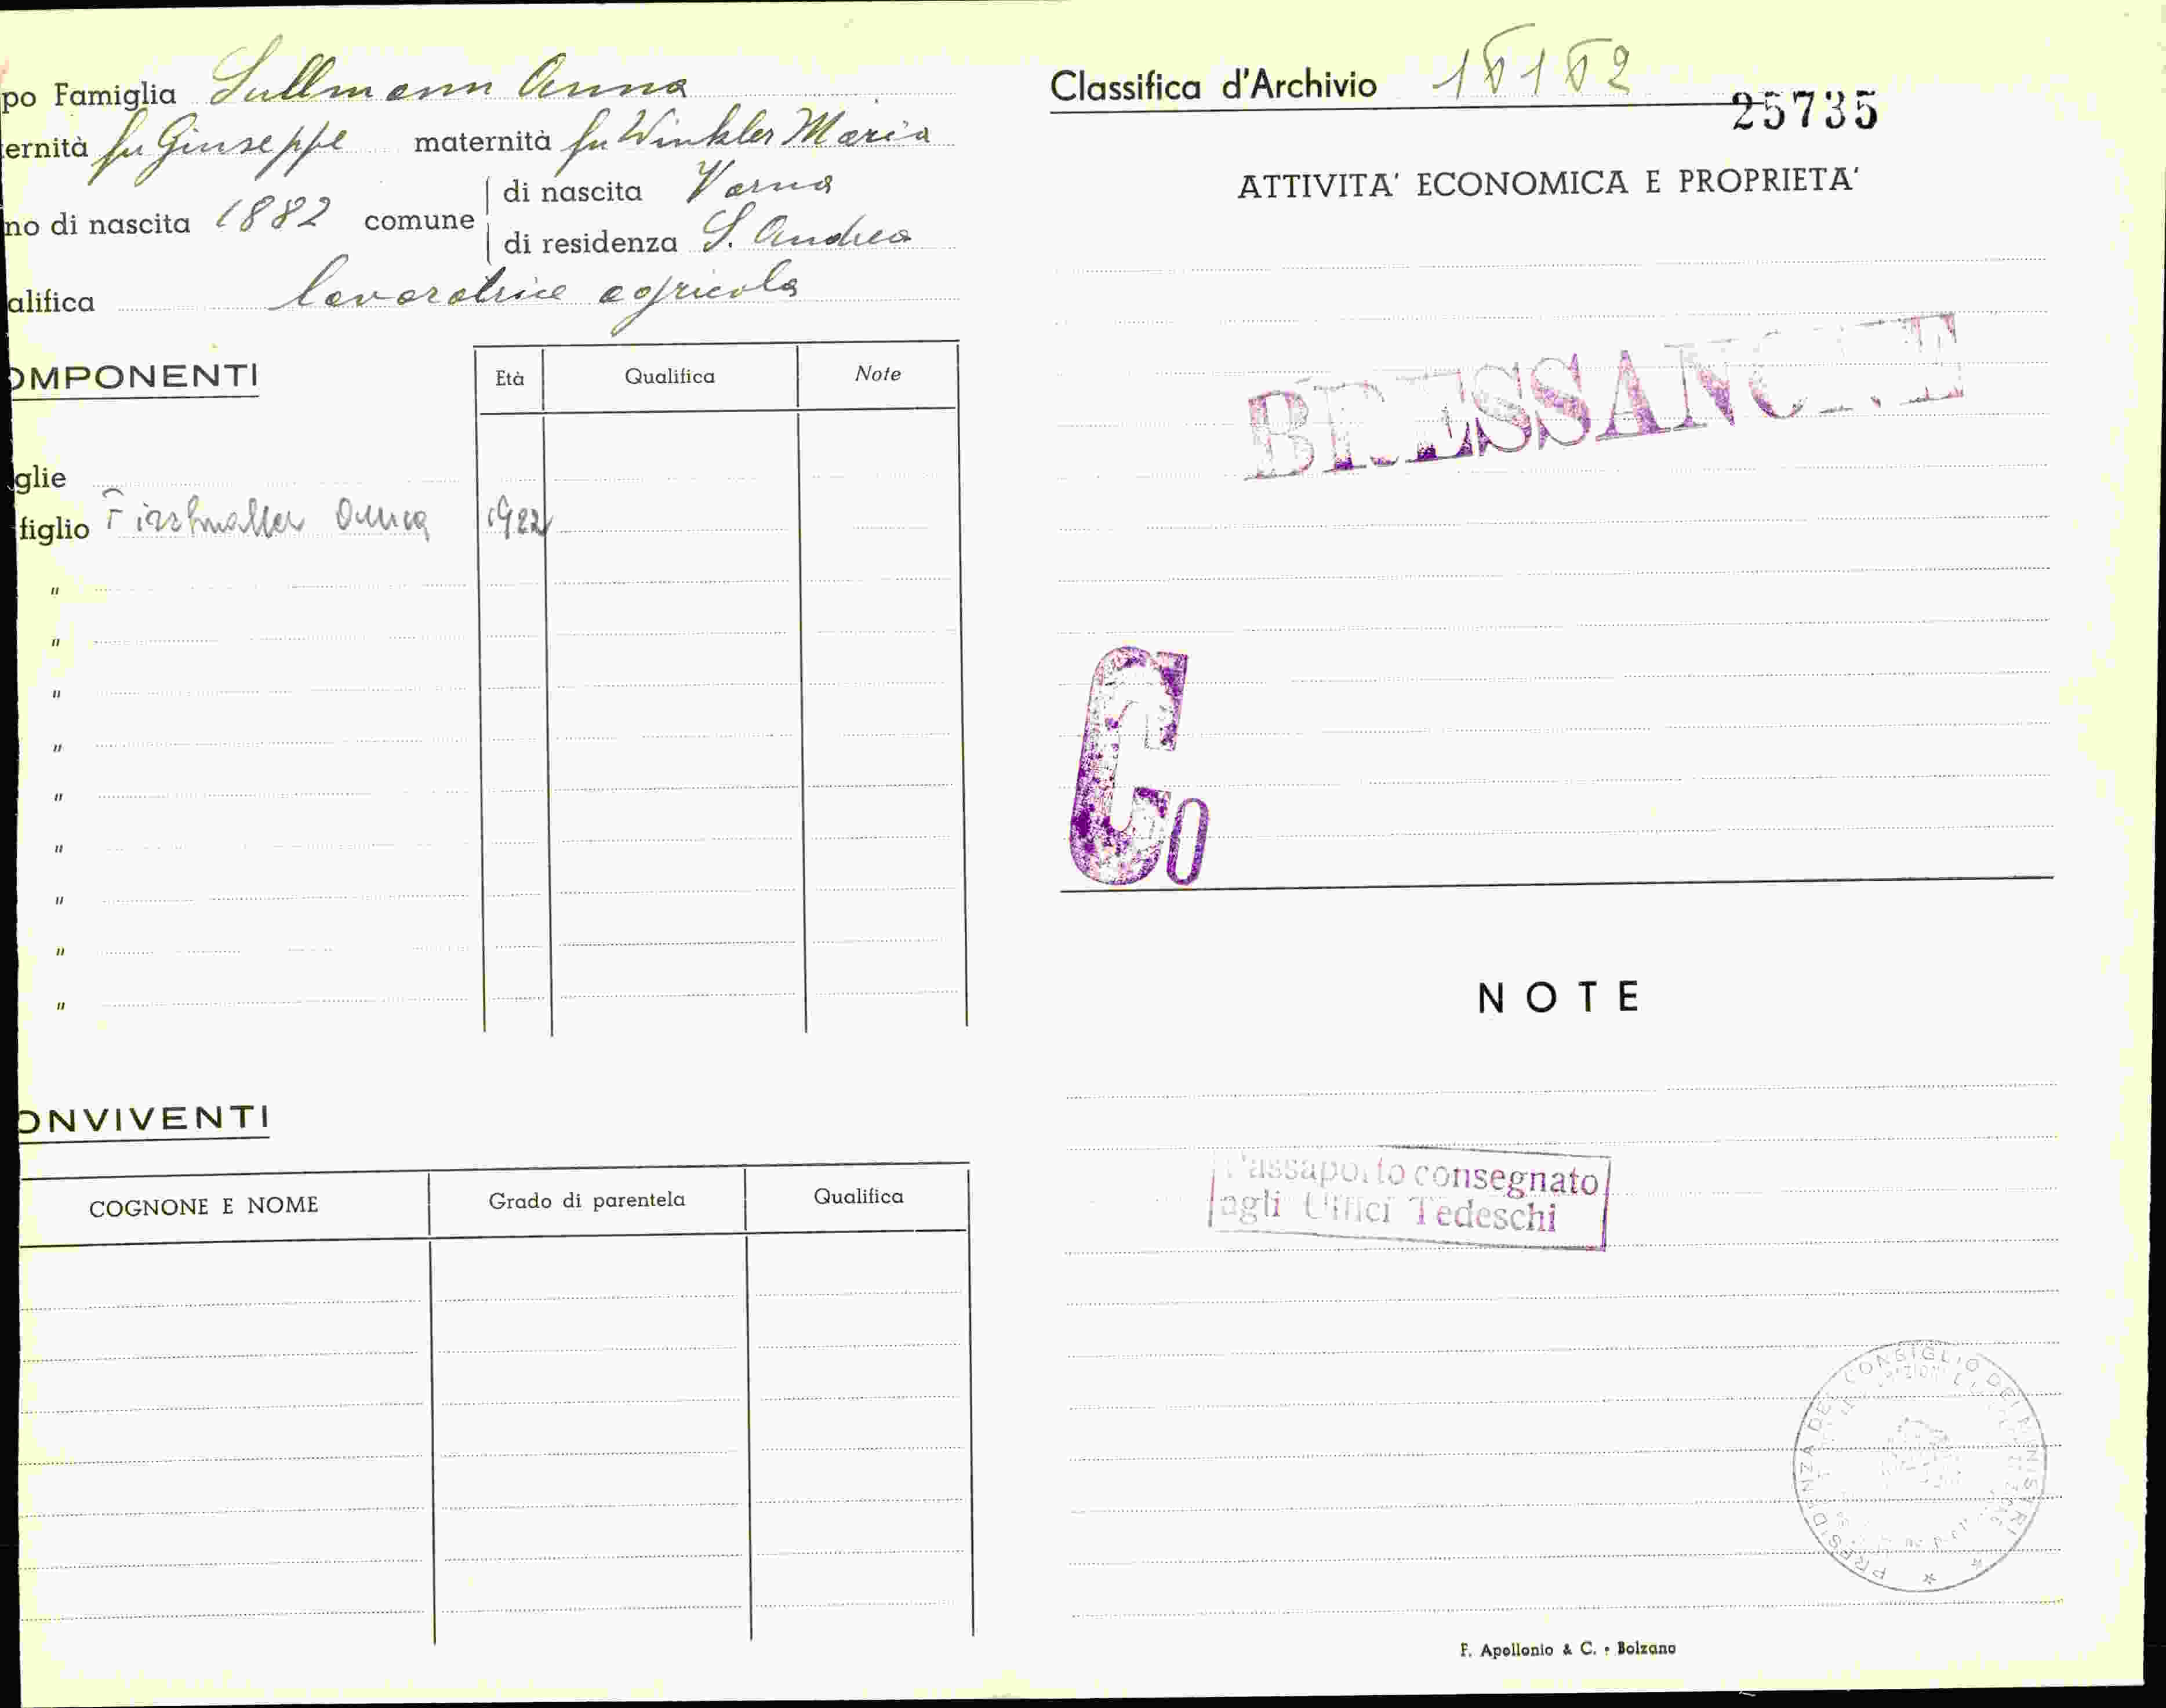 po Famiglia Sullmann Anna
ernità fu Giuseppe maternità fu Winkler Maria
no di nascita 1882 comune di nascita Varna
di residenza S. Andrea
alifica lavoratrice agricola
OMPONENTI Età Qualifica Note
glie
figlio Anna 1922
"
"
"
"
"
"
"
"
"
ONVIVENTI
COGNONE E NOME Grado di parentela Qualifica
Classifica d'Archivio
25735
ATTIVITA' ECONOMICA E PROPRIETA'
BRESSANONE
Co
NOTE
Passaporto consegnato
agli Uffici Tedeschi
PRESIDENZA DEL CONSIGLIO DEI MINISTRI
F. Apollonio & C. • Bolzano